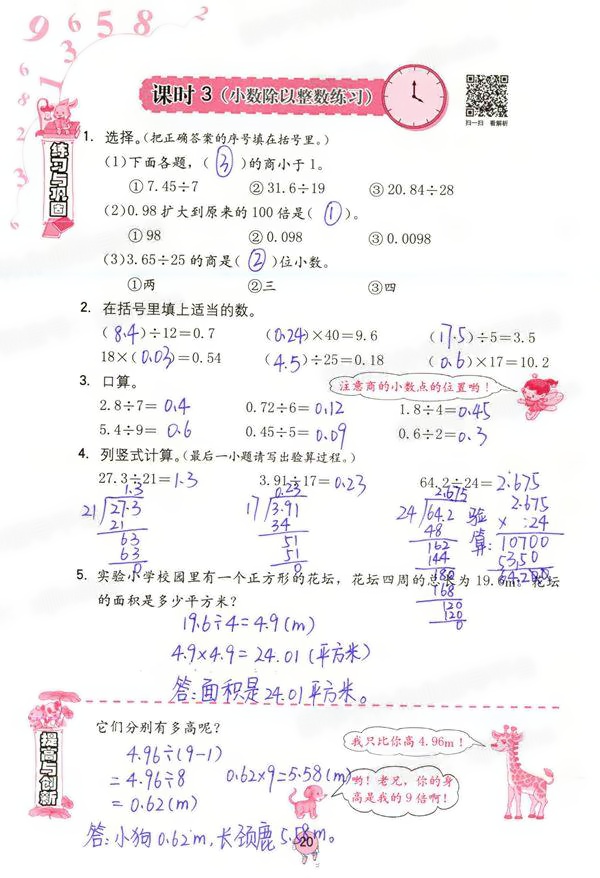 9 6 5 8
课时 3（小数除以整数练习）
扫一扫 看解析
练习与巩固
1. 选择。（把正确答案的序号填在括号里。）
(1)下面各题，( ③ )的商小于1。
①7.45÷7 ②31.6÷19 ③20.84÷28
(2)0.98扩大到原来的100倍是( ① )。
①98 ②0.098 ③0.0098
(3)3.65÷25的商是( ② )位小数。
①两 ②三 ③四
2. 在括号里填上适当的数。
( 8.4 )÷12=0.7 ( 0.24 )×40=9.6 ( 17.5 )÷5=3.5
18×( 0.03 )=0.54 ( 4.5 )÷25=0.18 ( 0.6 )×17=10.2
3. 口算。
注意商的小数点的位置哟！
2.8÷7= 0.4 0.72÷6= 0.12 1.8÷4= 0.45
5.4÷9= 0.6 0.45÷5= 0.09 0.6÷2= 0.3
4. 列竖式计算。（最后一小题请写出验算过程。）
27.3÷21= 1.3 3.91÷17= 0.23 64.2÷24= 2.675
1.3 0.23 2.675 2.675
21 27.3 17 3.91 24 64.2 验 × 24
21 34 48 算: 10700
63 51 162 5350
63 51 144 64.200
0 0 180
168
120
120
0
5. 实验小学校园里有一个正方形的花坛，花坛四周的总长为19.6m，花坛
的面积是多少平方米？
19.6÷4=4.9(m)
4.9×4.9=24.01(平方米)
答:面积是24.01平方米。
提高与创新
它们分别有多高呢？
我只比你高4.96m！
4.96÷(9-1)
=4.96÷8 0.62×9=5.58(m)
=0.62(m)
哟！老兄，你的身
高是我的9倍啊！
答:小狗0.62m,长颈鹿5.58m。
20